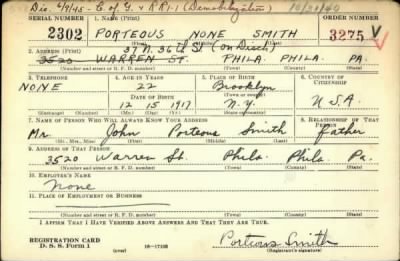 Dis. 6/9/45 - C of G. v RR1-1 (Demobilization) 10/30/40
SERIAL NUMBER 1. NAME (Print) ORDER NUMBER
2302 PORTEOUS NONE SMITH 3275 V
(First) (Middle) (Last)
37 N. 36th St (on Disch)
2. ADDRESS (Print)
3520 WARREN ST. PHILA. PHILA. PA.
(Number and street or R. F. D. number) (Town) (County) (State)
3. TELEPHONE 4. AGE IN YEARS 5. PLACE OF BIRTH 6. COUNTRY OF CITIZENSHIP
NONE 22 Brooklyn
DATE OF BIRTH (Town or county)
12 15 1917 N.Y. U.S.A.
(Exchange) (Number) (Mo.) (Day) (Yr.) (State or country)
7. NAME OF PERSON WHO WILL ALWAYS KNOW YOUR ADDRESS 8. RELATIONSHIP OF THAT PERSON
Mr. John Porteous Smith father
(Mr., Mrs., Miss) (First) (Middle) (Last)
9. ADDRESS OF THAT PERSON
3520 Warren St. Phila. Phila Pa.
(Number and street or R. F. D. number) (Town) (County) (State)
10. EMPLOYER'S NAME
None
11. PLACE OF EMPLOYMENT OR BUSINESS
(Number and street or R. F. D. number) (Town) (County) (State)
I AFFIRM THAT I HAVE VERIFIED ABOVE ANSWERS AND THAT THEY ARE TRUE.
REGISTRATION CARD
D. S. S. Form 1 (over) 16-17105 Porteous Smith
(Registrant's signature)